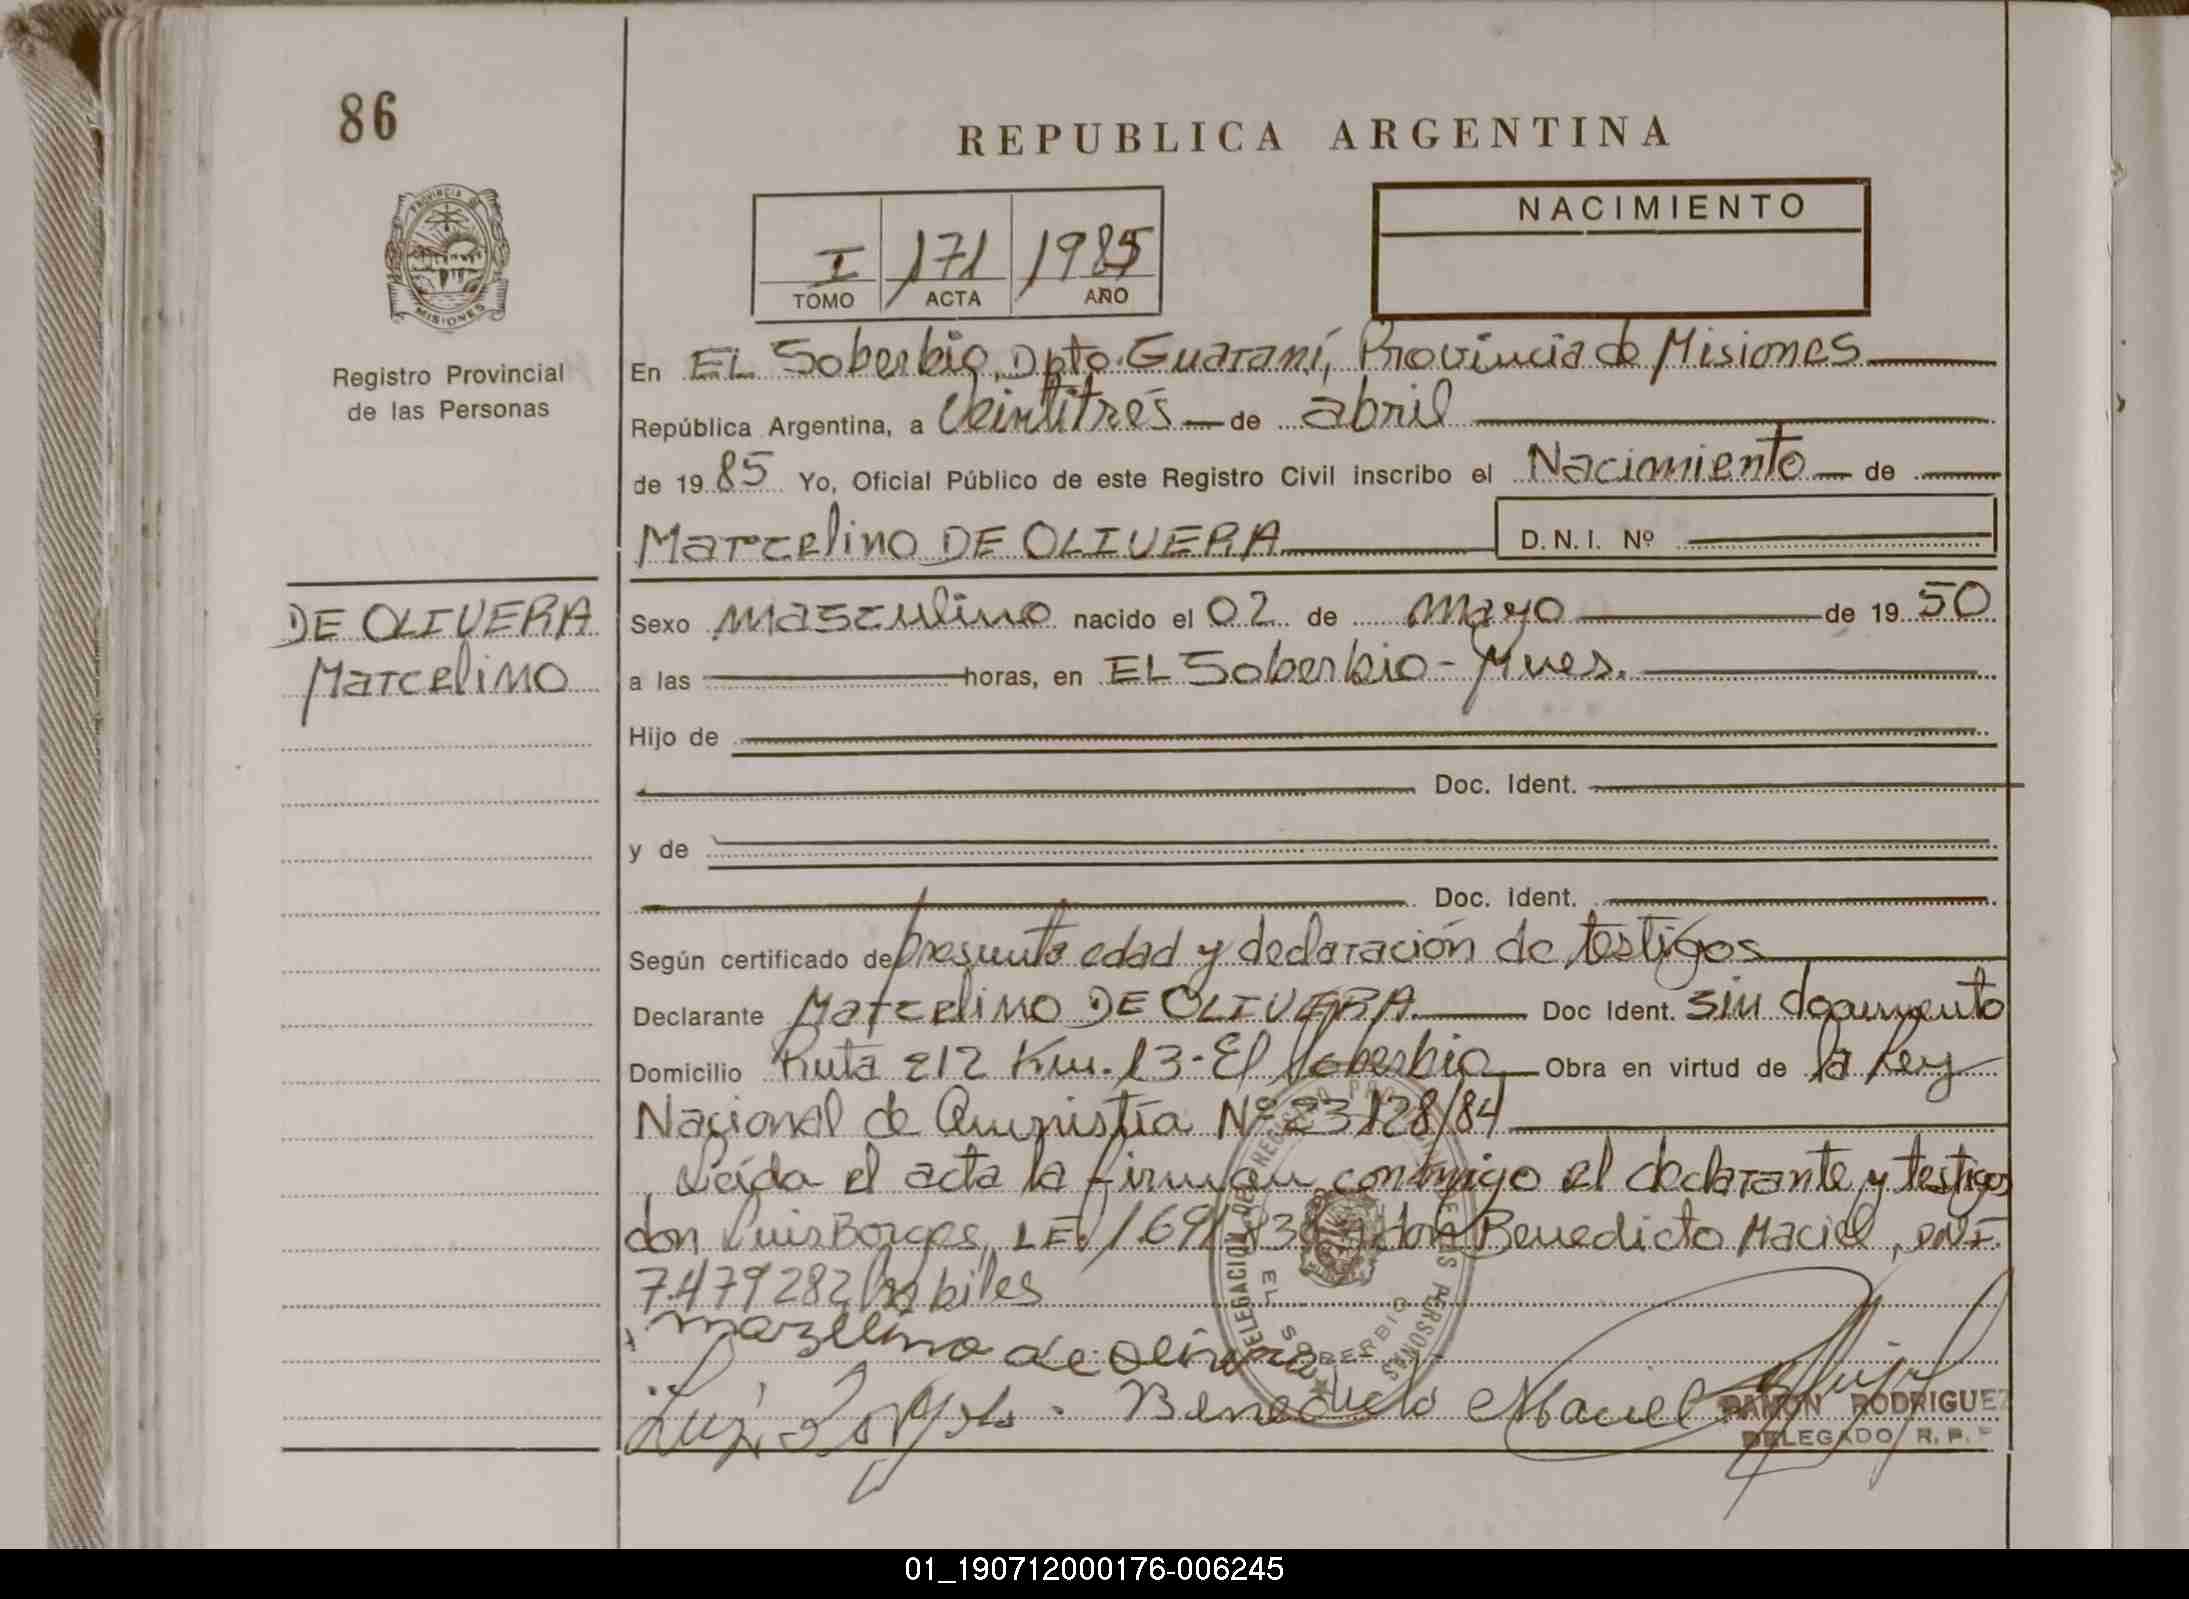 86
REPUBLICA ARGENTINA
PROVINCIA DE
MISIONES
Registro Provincial
de las Personas
I 171 1985
TOMO ACTA AÑO
NACIMIENTO
En EL Soberbio, Dpto. Guaraní, Provincia de Misiones
República Argentina, a Veintitrés de abril
de 1985 Yo, Oficial Público de este Registro Civil inscribo el Nacimiento de
Marcelino DE OLIVERA D.N.I. Nº
DE OLIVERA
Marcelino
Sexo masculino nacido el 02 de mayo de 1950
a las horas, en EL Soberbio - Mnes.
Hijo de
Doc. Ident.
y de
Doc. Ident.
Según certificado de presunta edad y declaración de testigos
Declarante Marcelino DE OLIVERA Doc Ident. sin documento
Domicilio Ruta 212 Km. 13 - El Soberbio Obra en virtud de la Ley
Nacional de Amnistía Nº 23128/84
Leída el acta la firman conmigo el declarante y testigos
don Luis Borges, LE. don Benedicto Maciel, DNI.
7.479282 hábiles
marzelino de olivera
Luis Borges. Benedicto Maciel
RAMON RODRIGUEZ
DELEGADO R. P.
DELEGACION DEL REGISTRO PROVINCIAL DE LAS PERSONAS
EL SOBERBIO
01_190712000176-006245